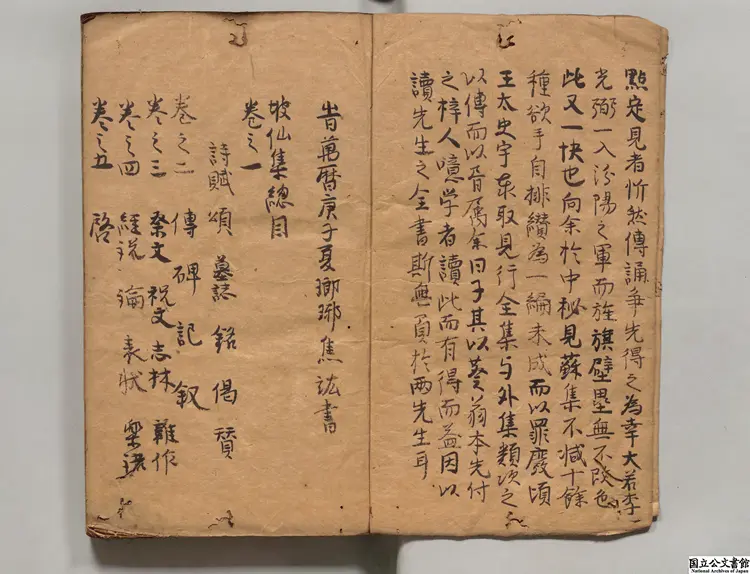 點定見者忻然傳誦爭先得之為幸大若李
光弼一入汾陽之軍而旌旗壁壘無不改色
此又一快也向余於中秘見蘇集不減十餘
種欲手自排纘為一編未成而以罪廢頃
王太史宇泰取見行全集与外集類次之
以傳而以首屬余曰子其以長翁本先付
之梓人噫学者讀此而有得而益因以
讀先生之全書斯無負於两先生耳
旹萬曆庚子夏瑯琊焦竑書
坡仙集總目
卷之一
詩賦 頌 墓誌 銘 偈 贊
卷之二 傳 碑 記 叙
卷之三 祭文 祝文 志林 雜作
卷之四 經説 論 表狀 樂語
卷之五 啓
国立公文書館
National Archives of Japan